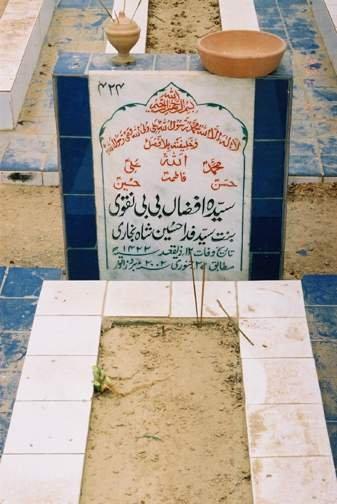 ۴۲۴
اللہ
بسم اللہ الرحمن الرحیم
لا الہ الا اللہ محمد رسول اللہ علی ولی اللہ وصی رسول اللہ
وخلیفتہ بلا فصل
محمدؐ اللہ علیؑ
حسنؑ فاطمہؑ حسینؑ
سیدہ افضال بی بی نقوی
بنت سید فدا حسین شاہ بخاری
تاریخ وفات ۱۲ ذیقعد ۱۴۲۲
مطابق جنوری ۲۰۰۲ء بروز اتوار